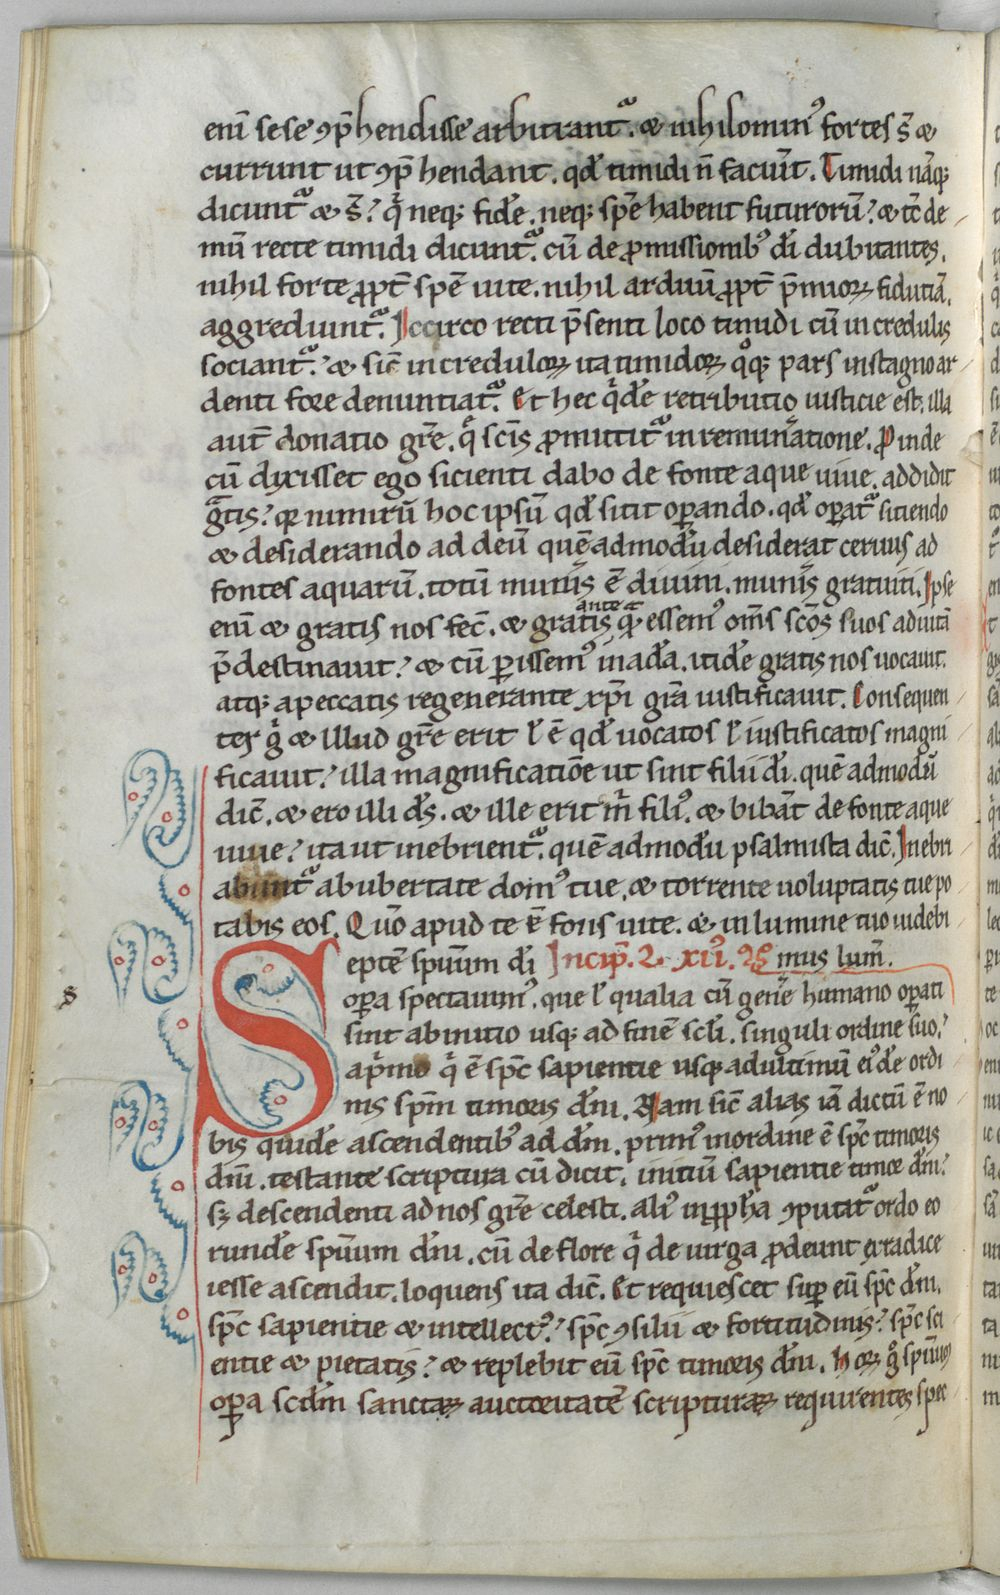 enī sese ꝯp̄hendisse arbitrantᷓ. ⁊ nihilominꝰ fortes s̄ ⁊
currunt ut ꝯp̄hendant. qd̄ timidi n̄ faciūt. Timidi nāq;
dicuntᷓ ⁊ s̄? qͥ neq; fidē. neq; spē habent futurorū? ⁊ tc̄ de
mū recte timidi dicuntᷓ. cū de ꝓmissionibꝰ dī dubitantes.
nihil forte ꝓpt̄ spē uite. nihil arduū ꝓpt̄ p̄mioꝝ fidutiā.
aggrediuntᷓ. Iccirco recti p̄senti loco timidi cū incredulis
sociantᷓ? ⁊ sic̄ increduloꝝ ita timidoꝝ qͦq; pars in stagno ar
denti fore denuntiatᷓ. Et hec qͥdē retributio iusticie est. illa
aut̄ donatio gr̄e. qͣ scīs ꝓmittitᷓ in remunatione. Proinde
cū dixisset ego sicienti dabo de fonte aque uiue. addidit
gᷓtis? qꝛ nimirū hoc ipsū qd̄ sitit oꝑando. qd̄ oꝑatᷓ sitiendo
⁊ desiderando ad deū quēadmodū desiderat ceruus ad
fontes aquarū. totū muniꝰ ē diuini. muniꝰ gratuiti. Ipse
enī ⁊ gratis nos fec̄. ⁊ gratis anteqͣ essemꝰ om̄s scōs suos ad uitā
p̄destinauit? ⁊ cū ꝑissemꝰ in adā. itidē gratis nos uocauit.
atq; a peccatis regenerante xp̄i grā iustificauit. Consequen
ter gͦ ⁊ illud gr̄e erit ł ē qd̄ uocatos ł iustificatos magni
ficauit? illa magnificatiōe ut sint filii dī. quēadmodū
dic̄. ⁊ ero illi ds̄. ⁊ ille erit mͥ filiꝰ. ⁊ bibāt de fonte aque
uiue? ita ut inebrientᷓ. quēadmodū psalmista dic̄. Inebri
abuntᷓ ab ubertate domꝰ tue. ⁊ torrente uoluptatis tue po
tabis eos. Qūo apud te ē fons uite. ⁊ in lumine tuo uidebi
Septē spūum dī Incip̄. L. xiiꝰ. mus lum̄.
oꝑa spectauimꝰ. que ł qualia cū genē humano oꝑati
sint ab initio usq; ad finē scl̄i. singuli ordine suo?
a pͥmo qͥ ē sp̄c sapientie usq; ad ultimū eiꝰdē ordi
nis sp̄m timoris dn̄i. Nam sic̄ alias iā dictū ē no
bis quidē ascendentibꝰ ad dn̄m. primꝰ in ordine ē sp̄c timoris
dn̄i. testante scriptura cū dicit. initiū sapientie timor dn̄i?
sꝫ descendenti ad nos gr̄e celesti. aliꝰ in ꝓph̄a ꝯputatᷓ ordo eo
rundē spūum dn̄i. cū de flore qͥ de uirga ꝓdeunt ex radice
iesse ascendit. loquens ita dic̄. Et requiescet suꝑ eū sp̄c dn̄i.
sp̄c sapientie ⁊ intellectꝰ? sp̄c ꝯsilii ⁊ fortitudinis? sp̄c sci
entie ⁊ pietatis? ⁊ replebit eū sp̄c timoris dn̄i. Hoꝝ gͦ spūum
oꝑa scdm̄ sanctaꝝ auctoritatē scripturaꝝ requirentes spec
s